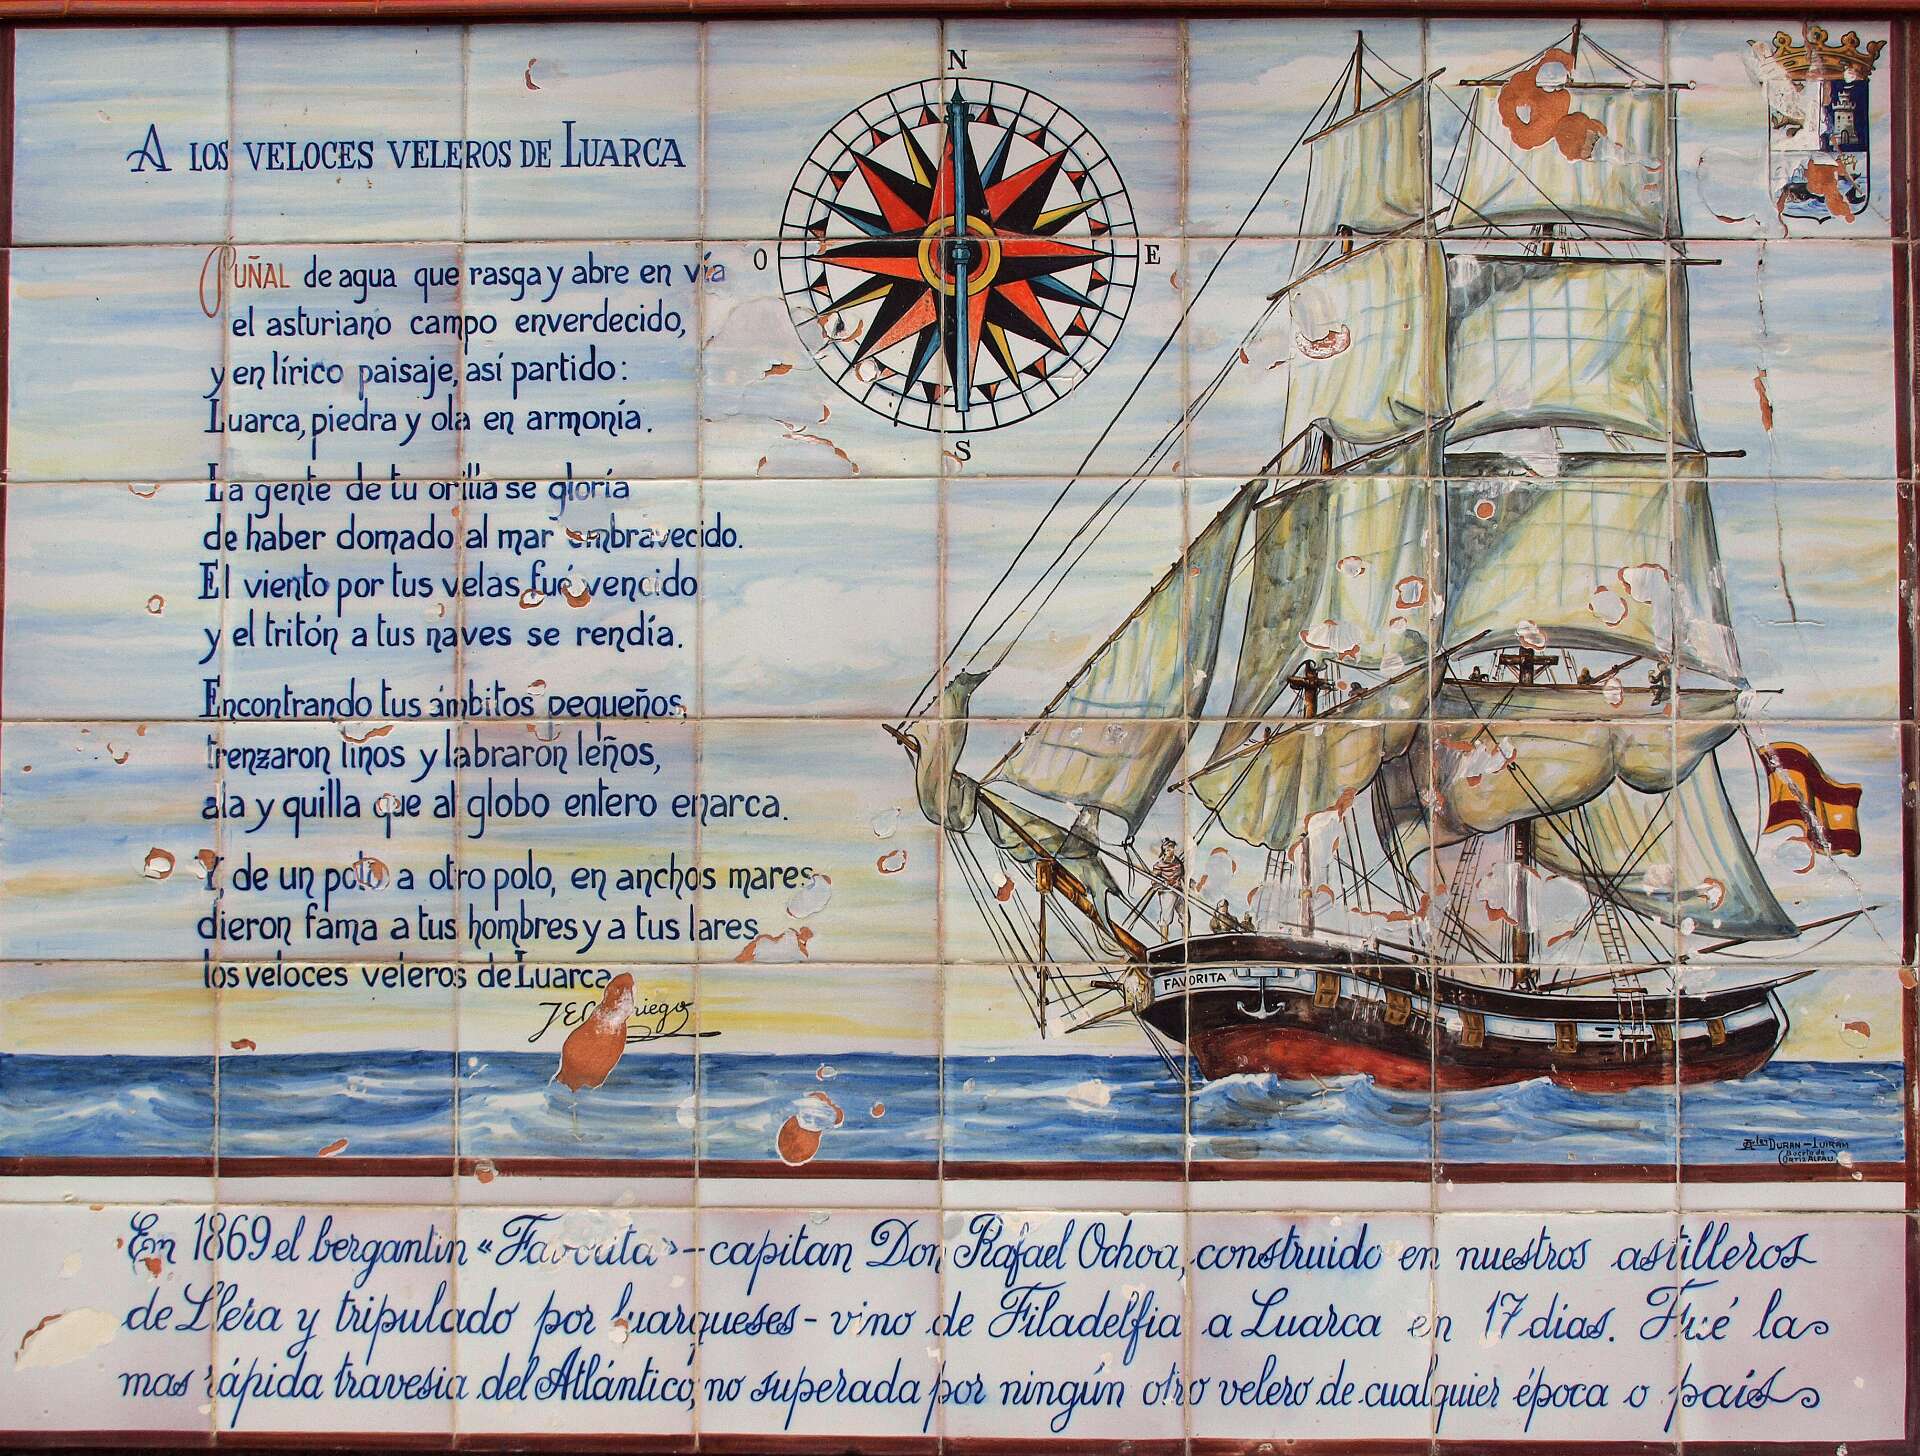 A LOS VELOCES VELEROS DE LUARCA
N
O
E
S
PUÑAL de agua que rasga y abre en vía
el asturiano campo enverdecido,
y en lírico paisaje, así partido:
Luarca, piedra y ola en armonía.
La gente de tu orilla se gloría
de haber domado al mar embravecido.
El viento por tus velas fué vencido
y el tritón a tus naves se rendía.
Encontrando tus ámbitos pequeños,
trenzaron linos y labraron leños,
ala y quilla que al globo entero enarca.
Y, de un polo a otro polo, en anchos mares
dieron fama a tus hombres y a tus lares
los veloces veleros de Luarca
FAVORITA
DURAN - LUIRAM
Boceto de
ORTIZ ALFAU
En 1869 el bergantin «Favorita» - capitan Don Rafael Ochoa, construido en nuestros astilleros
de Llera y tripulado por luarqueses - vino de Filadelfia a Luarca en 17 dias. Fué la
mas rápida travesia del Atlántico, no superada por ningún otro velero de cualquier época o país